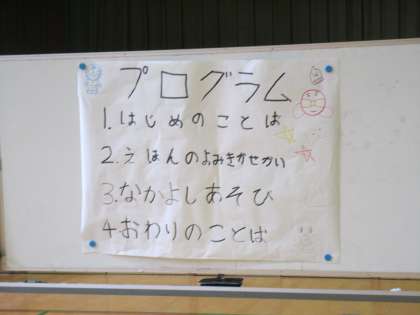 プログラム
1.はじめのことば
2.えほんのよみきかせかい
3.なかよしあそび
4.おわりのことば